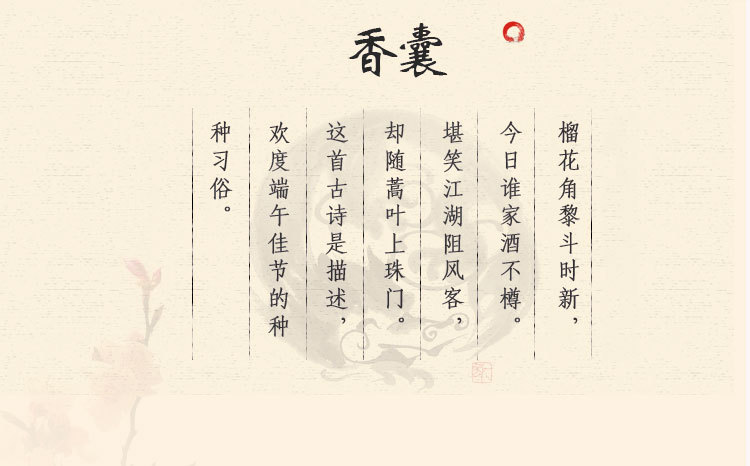 香囊
榴花角黎斗时新，
今日谁家酒不樽。
堪笑江湖阻风客，
却随蒿叶上珠门。
这首古诗是描述，
欢度端午佳节的种
种习俗。